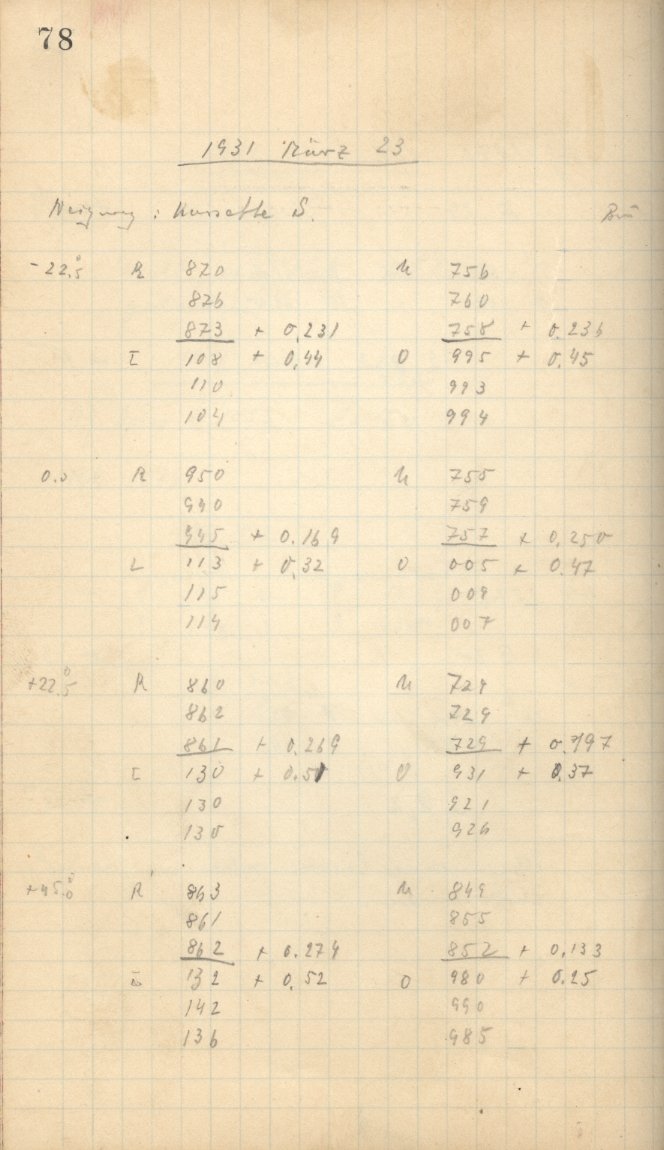 78
1931 März 23
Neigung : Kassette S.
-22°.5 R 820 U 756
826 760
823 + 0.231 758 + 0.236
L 108 + 0.44 O 995 + 0.45
110 993
104 994
0.0 R 950 U 755
940 759
945 + 0.169 757 + 0.250
L 113 + 0.32 O 005 + 0.47
115 009
114 007
+22°.5 R 860 U 729
862 729
861 + 0.269 729 + 0.197
L 130 + 0.51 O 931 + 0.37
130 921
130 926
+45°.0 R 863 U 849
861 855
862 + 0.274 852 + 0.133
L 132 + 0.52 O 980 + 0.25
142 990
136 985